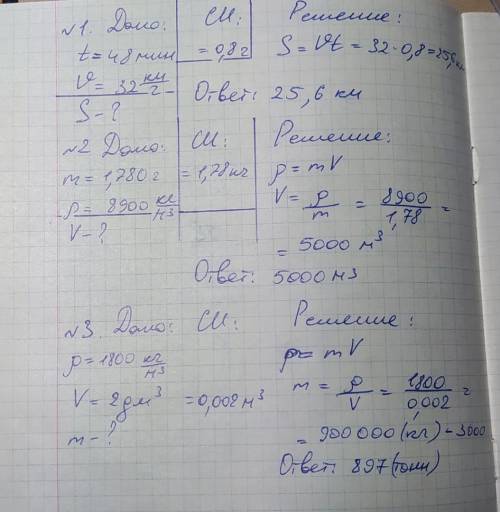 №1. Дано: СИ: Решение:
t = 48 мин = 0,8 г S = Vt = 32 · 0,8 = 25,6 км
V = 32 км/г
S - ? Ответ: 25,6 км
№2 Дано: СИ: Решение:
m = 1,780 г = 1,78 кг ρ = mV
ρ = 8900 кг/м³ V = ρ/m = 8900/1,78 =
V - ? = 5000 м³
Ответ: 5000 м3
№3. Дано: СИ: Решение:
ρ = 1800 кг/м³ ρ = mV
V = 2 дм³ = 0,002 м³ m = ρ/V = 1800/0,002 =
m - ? = 900 000 (кг) - 3000
Ответ: 897 (тонн)